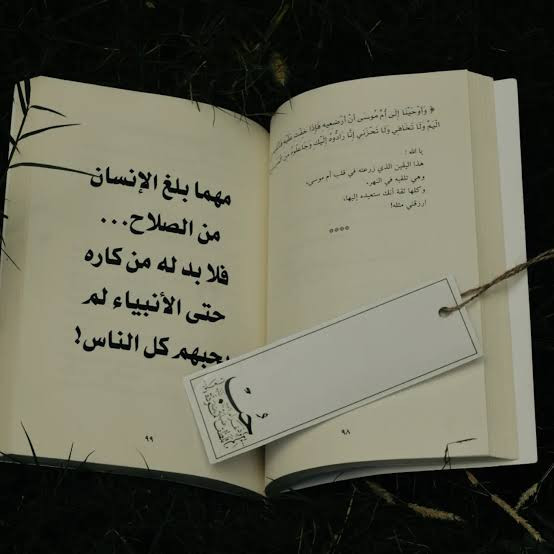 ﴿ وَأَوْحَيْنَا إِلَى أُمِّ مُوسَى أَنْ أَرْضِعِيهِ فَإِذَا خِفْتِ عَلَيْهِ فَأَلْقِيهِ
الْيَمِّ وَلَا تَخَافِي وَلَا تَحْزَنِي إِنَّا رَادُّوهُ إِلَيْكِ وَجَاعِلُوهُ مِنَ
يا الله!
هذا اليقين الذي زرعته في قلب أم موسى،
وهي تلقيه في النهر،
وكلها ثقة أنك ستعيده إليها،
ارزقني مثله!
****
٩٨
مهما بلغ الإنسان
من الصلاح...
فلا بد له من كاره
حتى الأنبياء لم
يحبهم كل الناس!
٩٩